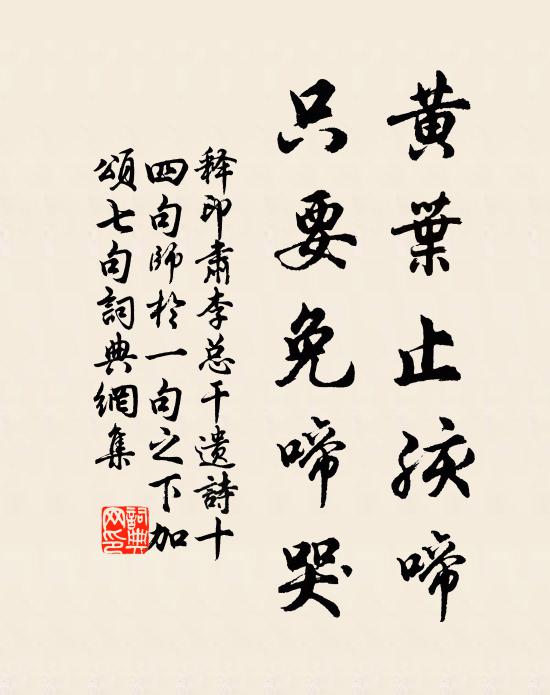 黄葉止孩啼
只要免啼哭
释印肃李总干遗詩十
四句師於一句之下加
頌七句詞典網集
詞典
网印